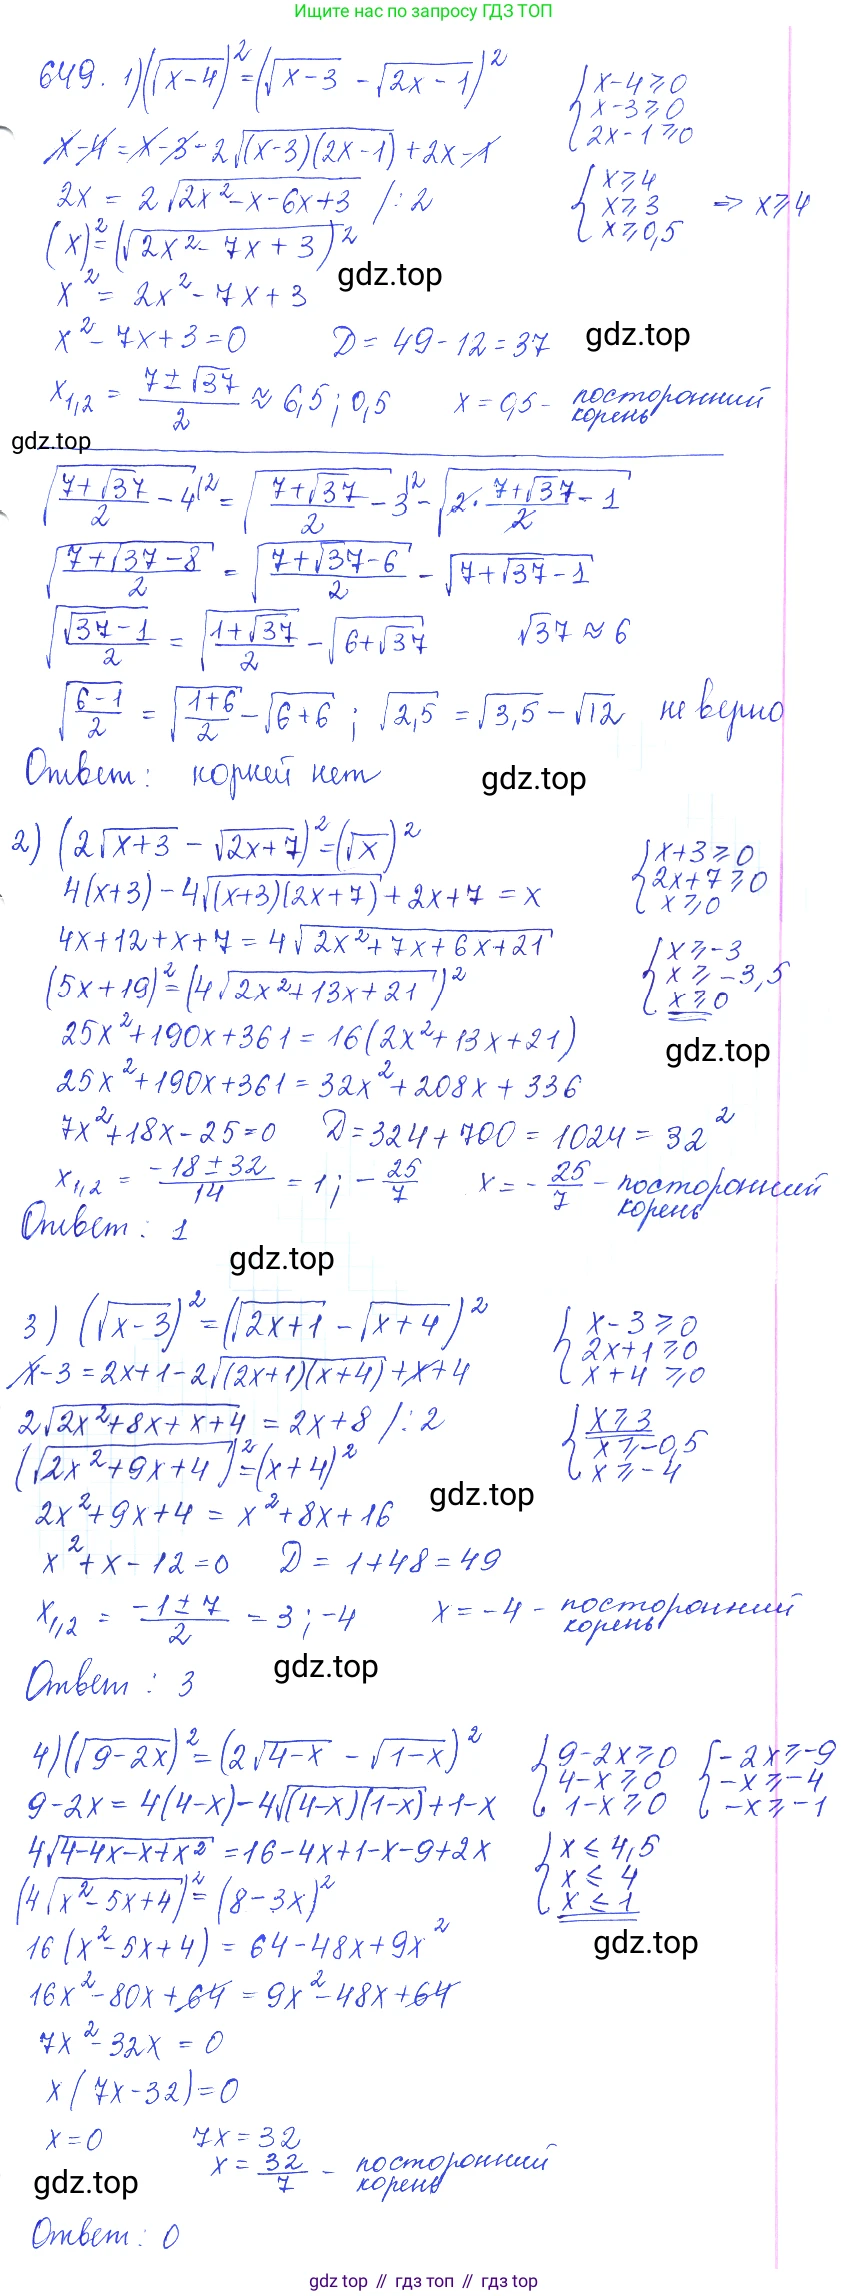 Ищите нас по запросу ГДЗ ТОП
649. 1) (√(x-4))² = (√(x-3) - √(2x-1))²
{ x-4≥0
x-3≥0
2x-1≥0
x-4 = x-3-2√((x-3)(2x-1)) + 2x-1
2x = 2√(2x²-x-6x+3) /:2
{ x≥4
x≥3
x≥0,5
=> x≥4
(x)² = (√(2x²-7x+3))²
gdz.top
x² = 2x²-7x+3
x²-7x+3=0 D = 49-12=37
gdz.top
x₁,₂ = (7±√37)/2 ≈ 6,5; 0,5 x = 0,5 - посторонний корень
gdz.top
√((7+√37)/2 - 4)² = √((7+√37)/2 - 3)² - √(2·(7+√37)/2 - 1)
√((7+√37-8)/2) = √((7+√37-6)/2) - √(7+√37-1)
√((√37-1)/2) = √((1+√37)/2) - √(6+√37) √37 ≈ 6
√((6-1)/2) = √((1+6)/2) - √(6+6) ; √2,5 = √3,5 - √12 не верно
Ответ: корней нет
gdz.top
2) (2√(x+3) - √(2x+7))² = (√x)²
{ x+3≥0
2x+7≥0
x≥0
4(x+3) - 4√((x+3)(2x+7)) + 2x+7 = x
4x+12+x+7 = 4√(2x²+7x+6x+21)
{ x≥-3
x≥-3,5
x≥0
(5x+19)² = (4√(2x²+13x+21))²
25x²+190x+361 = 16(2x²+13x+21)
gdz.top
25x²+190x+361 = 32x²+208x+336
7x²+18x-25=0 D=324+700=1024=32²
x₁,₂ = (-18±32)/14 = 1; -25/7 x = -25/7 - посторонний корень
Ответ: 1
gdz.top
3) (√(x-3))² = (√(2x+1) - √(x+4))²
{ x-3≥0
2x+1≥0
x+4≥0
x-3 = 2x+1-2√((2x+1)(x+4)) + x+4
2√(2x²+8x+x+4) = 2x+8 /:2
{ x≥3
x≥-0,5
x≥-4
(√(2x²+9x+4))² = (x+4)²
gdz.top
2x²+9x+4 = x²+8x+16
x²+x-12=0 D = 1+48=49
x₁,₂ = (-1±7)/2 = 3; -4 x = -4 - посторонний корень
Ответ: 3
gdz.top
4) (√(9-2x))² = (2√(4-x) - √(1-x))²
{ 9-2x≥0
4-x≥0
1-x≥0
{ -2x≥-9
-x≥-4
-x≥-1
9-2x = 4(4-x) - 4√((4-x)(1-x)) + 1-x
4√(4-4x-x+x²) = 16-4x+1-x-9+2x
{ x≤4,5
x≤4
x≤1
(4√(x²-5x+4))² = (8-3x)²
gdz.top
16(x²-5x+4) = 64-48x+9x²
16x²-80x+64 = 9x²-48x+64
7x²-32x = 0
x(7x-32)=0
x=0 7x=32
x = 32/7 - посторонний корень
gdz.top
Ответ: 0
gdz.top // гдз топ // gdz.top